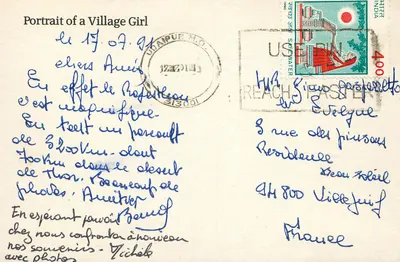 Portrait of a Village Girl
le 17.07.91
chers Amis
En effet le Rajasthan
c'est magnifique
En tout un parcourt
de 3200 km - dont
700 km dans le desert
de Thar. Beaucoup de
photos. Amitiés
En espérant pouvoir
chez nous confronter à nouveau
nos souvenirs - Michèle
avec photos
UDAIPUR H.O.
313001
USE PIN
REACH FASTER
भारत
INDIA
400
SAFE WATER
Evelyne
3 rue des pinsons
Residence
Beau soleil
94800 Villejuif
France